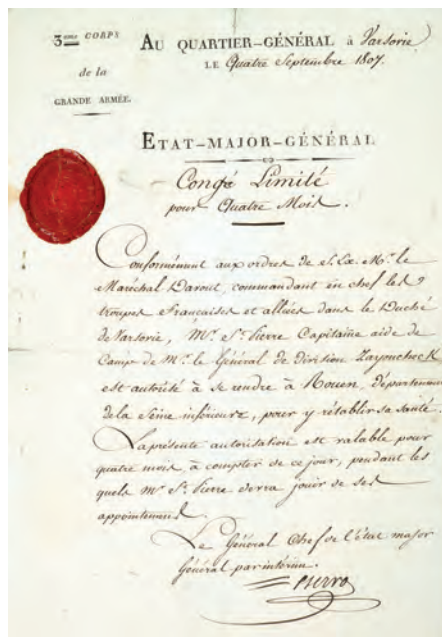 3eme CORPS
de la
GRANDE ARMÉE.
AU QUARTIER-GÉNÉRAL à Varsovie
LE Quatre Septembre 1807.
ETAT-MAJOR-GÉNÉRAL
Congé Limité
pour Quatre Mois.
Conformément aux ordres de S. Ex. Mr. le
Maréchal Davout, commandant en chef les
troupes Françaises et alliées dans le Duché
de Varsovie, Mr. St. Pierre Capitaine aide de
Camp de Mr. le Général de division Zayoncheck
est autorisé à se rendre à Rouen, département
de la Seine inférieure, pour y rétablir sa santé.
La présente autorisation est valable pour
quatre mois, à compter de ce jour, pendant les
quels Mr. St. Pierre devra jouir de ses
appointemens.
Le Général Chef de l'état major
Général par intérim.